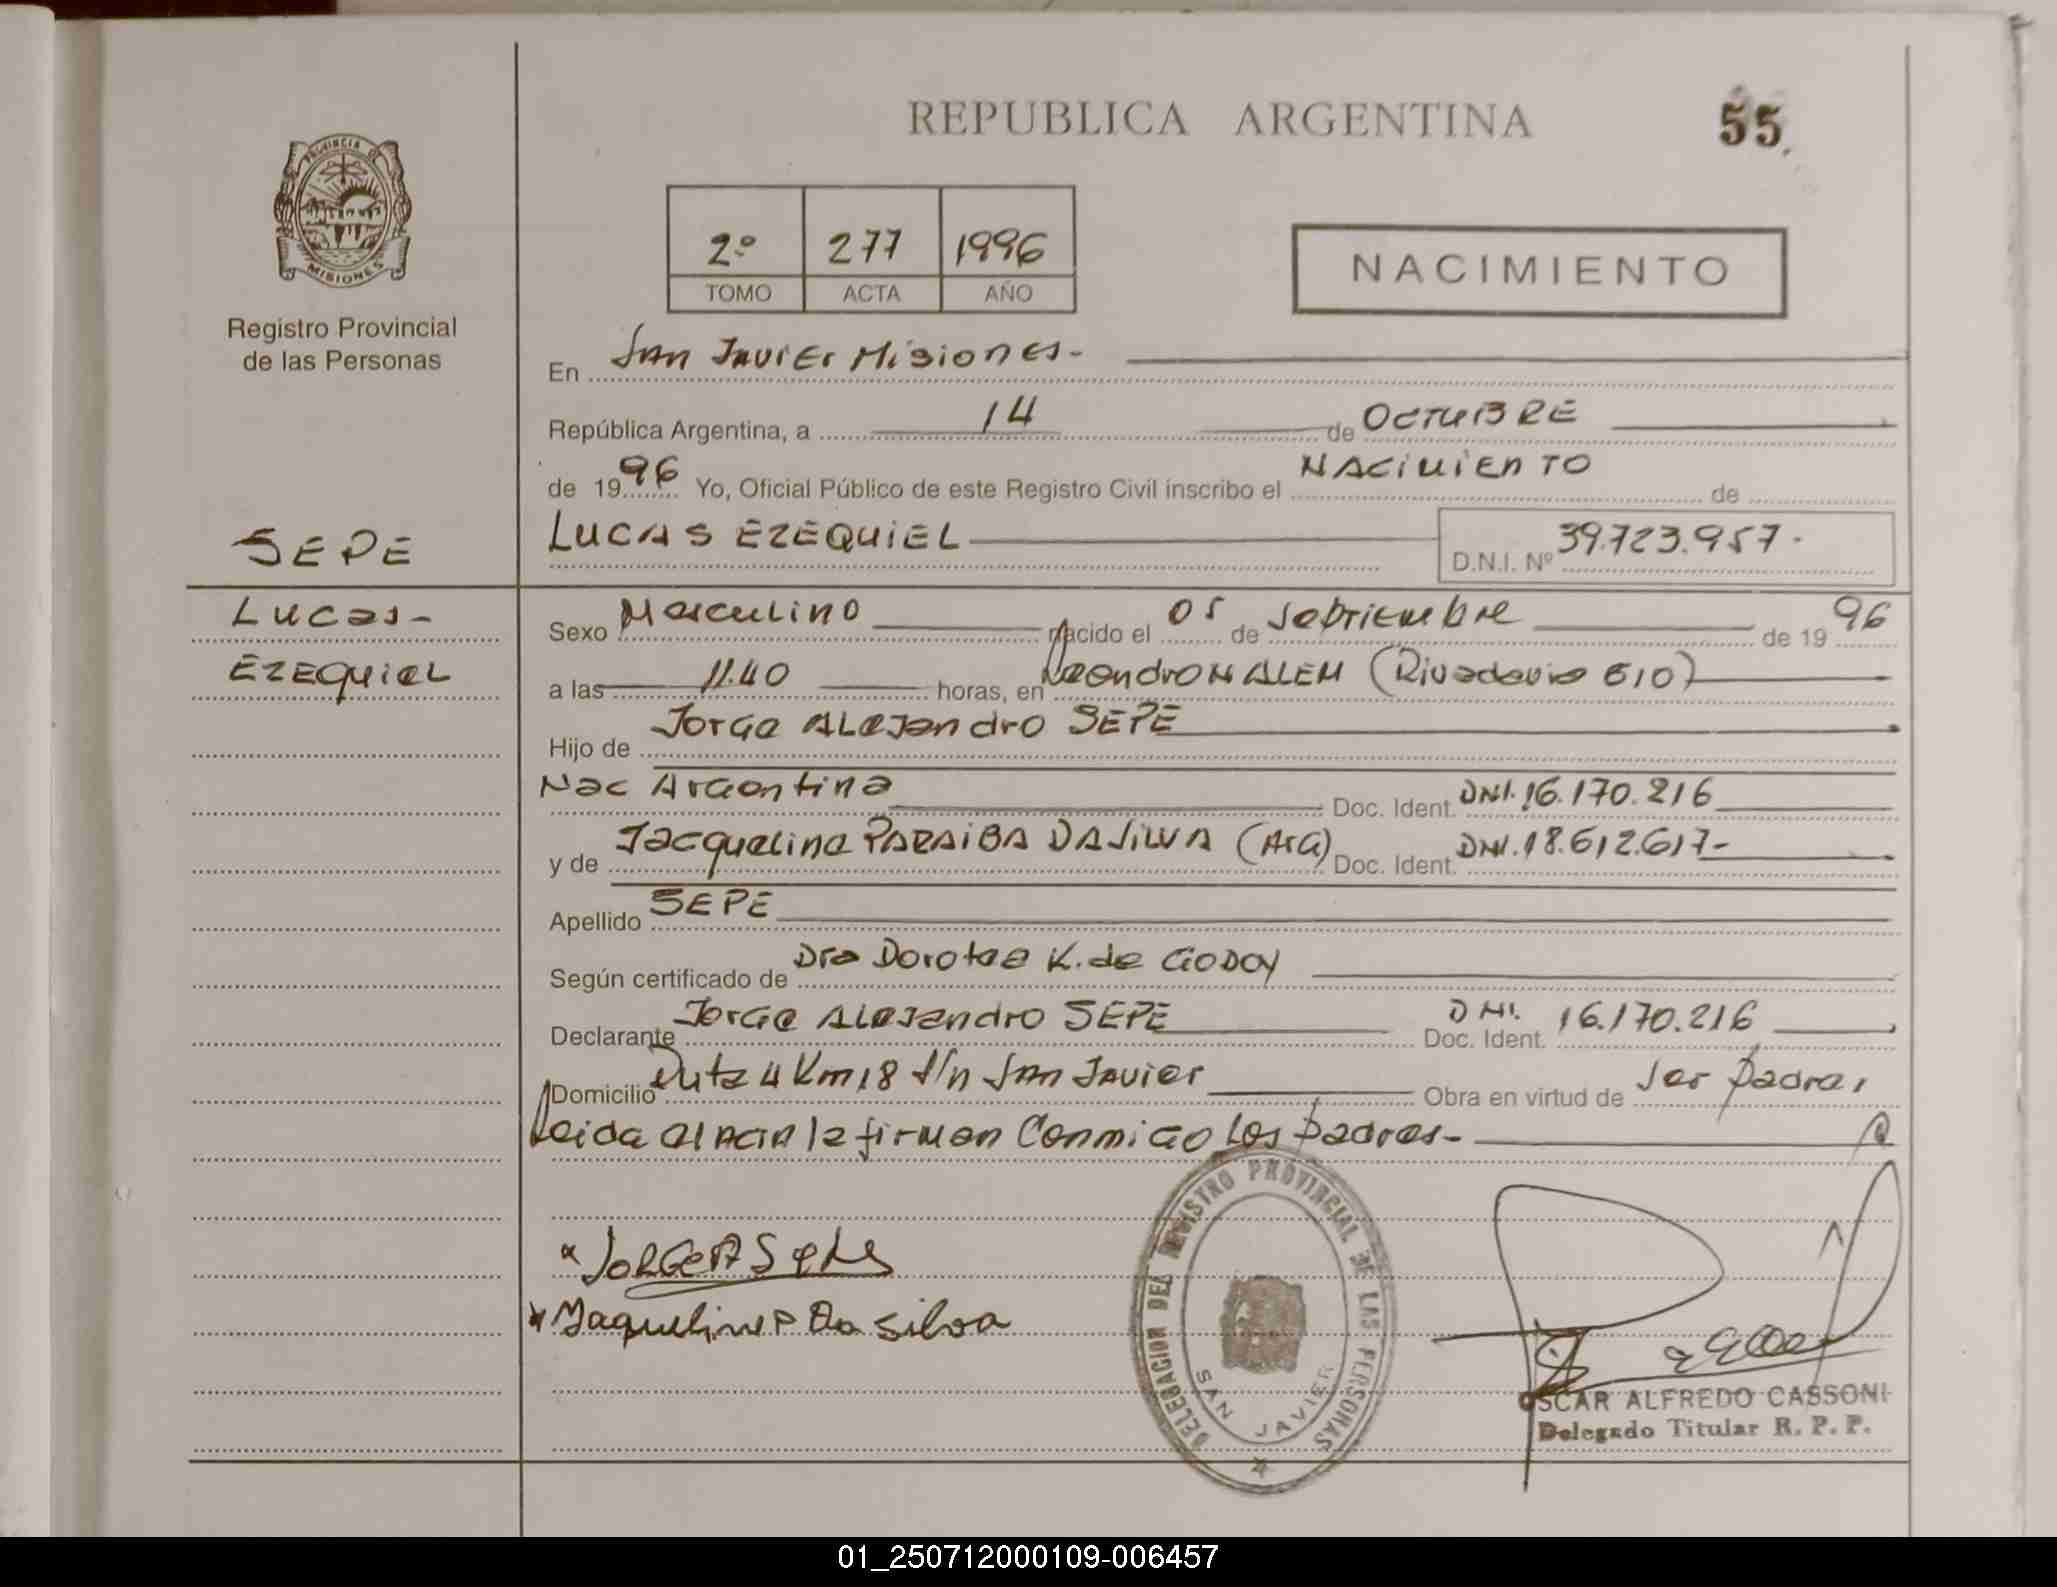 REPUBLICA ARGENTINA
55
PROVINCIA DE
MISIONES
Registro Provincial
de las Personas
2º 277 1996
TOMO ACTA AÑO
NACIMIENTO
En San Javier Misiones-
República Argentina, a 14 de OCTUBRE
de 1996 Yo, Oficial Público de este Registro Civil inscribo el NACIMIENTO de
SEPE
LUCAS EZEQUIEL D.N.I. Nº 39.723.957.
Lucas-
EZEQUIEL
Sexo Masculino nacido el 05 de Sebtiembre de 1996
a las 11.40 horas, en Leandro N ALEM (Rivadavia 610)
Hijo de Jorge ALejandro SEPE
Nac Argentina Doc. Ident. DNI. 16.170.216
y de Jacqueline PARAIBA DASILVA (ArG) Doc. Ident. DNI. 18.612.617-
Apellido SEPE
Según certificado de Dra Dorotea K. de GODOY
Declarante Jorge ALejandro SEPE Doc. Ident. DNI. 16.170.216
Domicilio Ruta 4 Km 18 s/n San Javier Obra en virtud de Ser padre,
Leida el Acta la firman Conmigo Los padres-
JORGE A Sepe
Jaqueline P Da Silva
DELEGACION DEL REGISTRO PROVINCIAL DE LAS PERSONAS
SAN JAVIER
OSCAR ALFREDO CASSONI
Delegado Titular R. P. P.
01_250712000109-006457